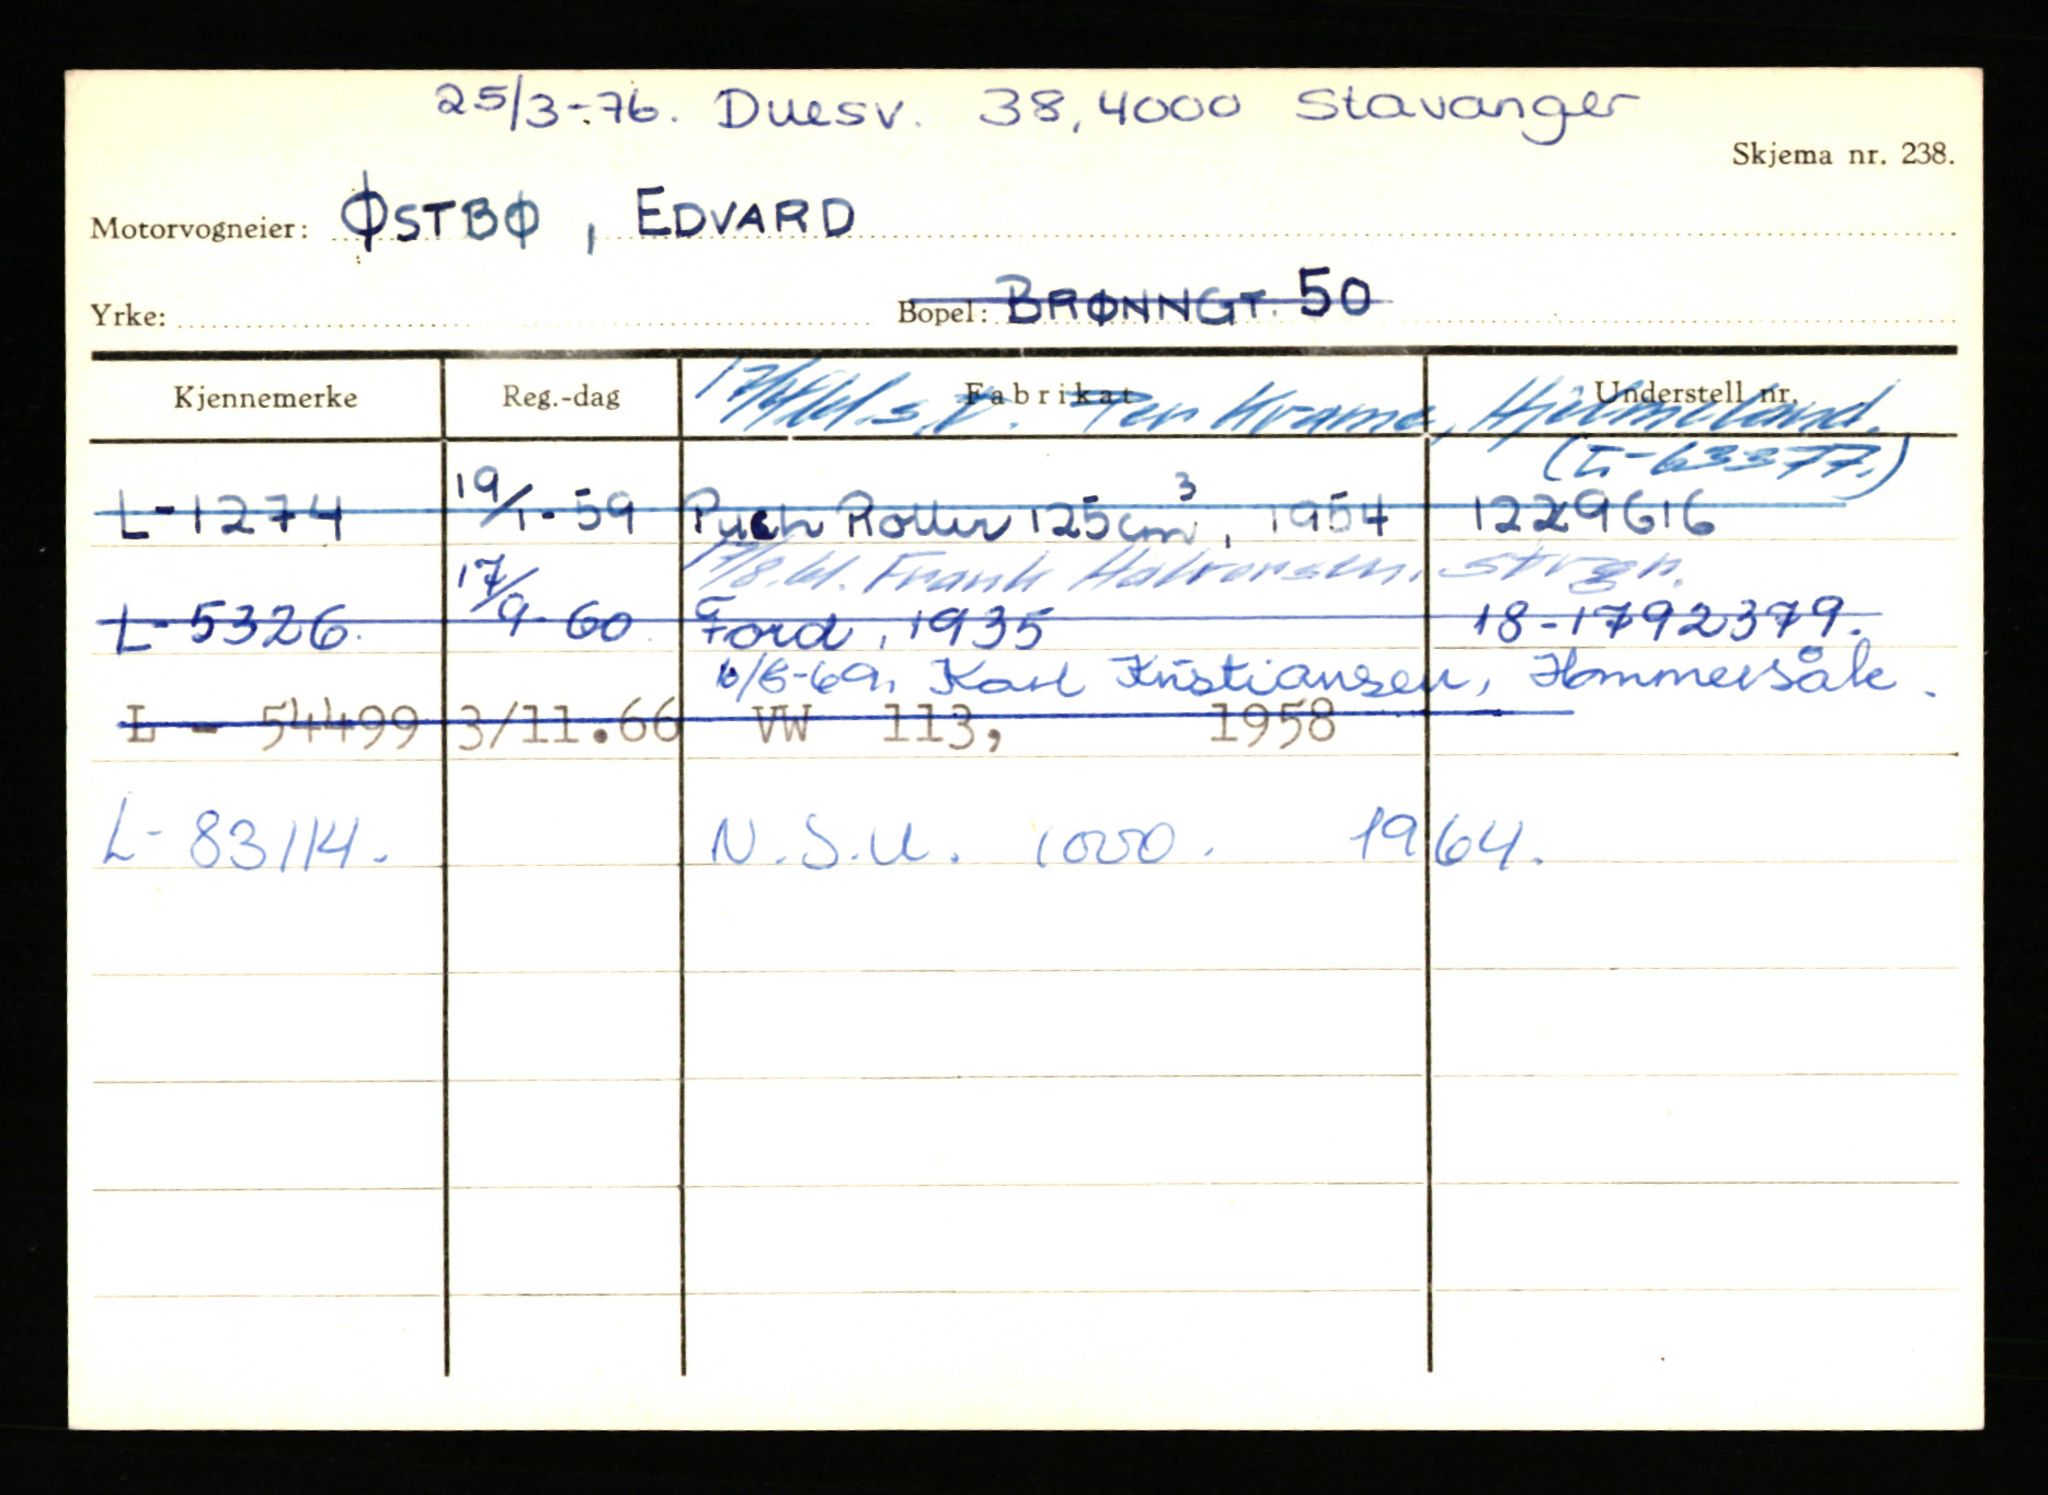 25/3-76. Duesv. 38, 4000 Stavanger
Skjema nr. 238.
Motorvogneier: ØSTBØ, EDVARD
Yrke: Bopel: BRØNNGT. 50
Kjennemerke Reg.-dag Fabrikat Understell nr.
Per Kvame, Hjelmeland.
(L-63377.)
L-1274 19/1-59 Puch Roller 125cm³, 1954 1229616
Frank Halvorsen, Strgn.
L-5326. 17/9-60 Ford, 1935 18-1792379.
Karl Kristiansen, Hommersåk.
L - 54499 3/11.66 VW 113, 1958
L-83114. N.S.U. 1000. 1964.